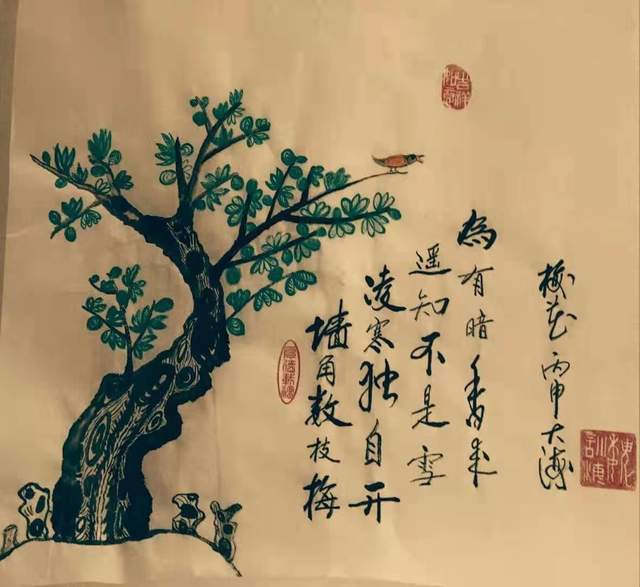 墙角数枝梅
凌寒独自开
遥知不是雪
為有暗香来
梅花 丙申 大